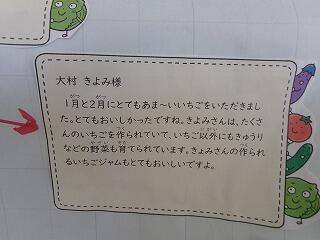 大村 きよみ様
1月と2月にとてもあま～いいちごをいただきまし
た。とてもおいしかったですね。きよみさんは、たくさ
んのいちごを作られていて、いちご以外にもきゅうり
などの野菜も育てられています。きよみさんの作られ
るいちごジャムもとてもおいしいですよ。